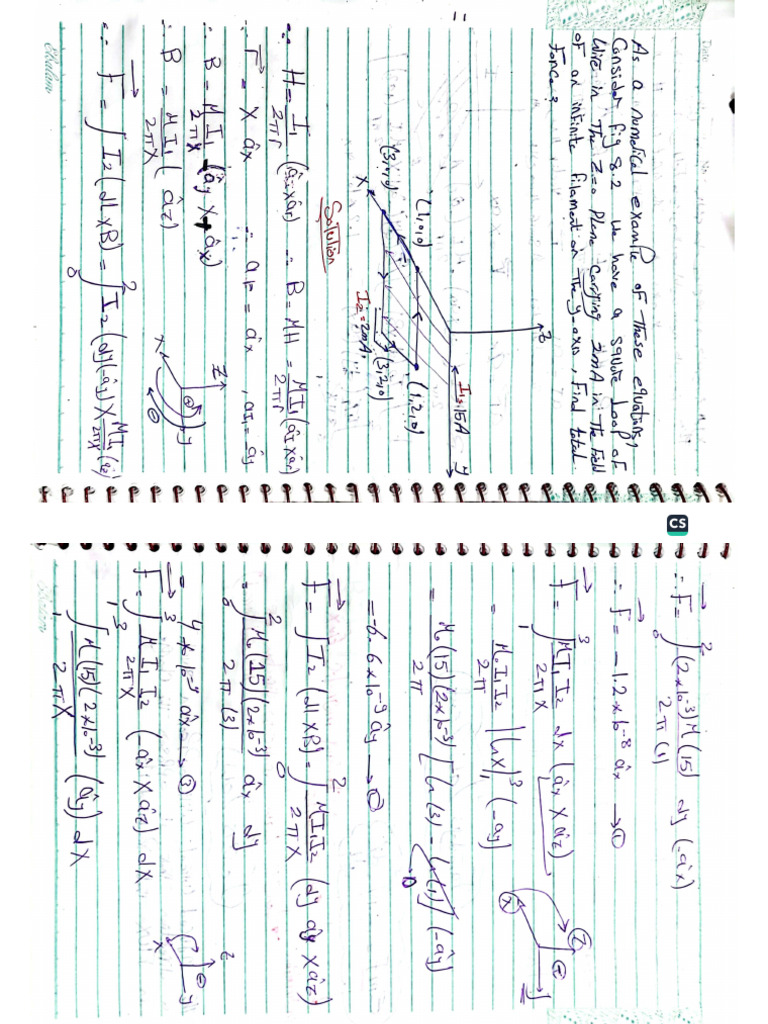 As a numerical example of These equations,
Consider fig 8.2 we have a square Loop of
Wire in The Z=0 Plane carrying 2mA in The field
of an infinite filament on The y-axis, Find total
Force?
Z
I₁=15A
y
(1,0,0)
(1,2,0)
(3,0,0)
(3,2,0)
X
I₂=2mA
Solution
∵ H = I₁/2πr (âI × âr) ∴ B = MH = MI₁/2πr (âI × âr)
∵ r⃗ = X âx ∴ ar = âx , aI₁ = ây
∴ B = MI₁/2πX (ây × + âx)
∴ B = MI₁/2πX (âz)
Z
y
X
∴ F⃗ = ∫ I₂ (dl × B) = ∫₀² I₂ (dy(-ây) × MI₁/2πX (âz)
CS
∴ F⃗ = ∫₀² (2×10⁻³) M (15) / 2π(1) dy (-âx)
∴ F⃗ = -1.2×10⁻⁸ âx → ①
F⃗ = ∫₁³ MI₁I₂/2πX dx (âx × âz)
= M₀I₁I₂/2π |ln x|₁³ (-ây)
= M₀(15)(2×10⁻³)/2π [ln(3) - ln(1)] (-ây)
0
= -6.6×10⁻⁹ ây → ②
F⃗ = ∫ I₂ (dl × B) = ∫₀² MI₁I₂/2πX (dy ây × âz)
= ∫₀² M₀(15)(2×10⁻³)/2π(3) âx dy
= 4×10⁻⁹ âx → ③
F⃗ = ∫₁³ MI₁I₂/2πX (-âx × âz) dx
z
y
x
∫₁³ M(15)(2×10⁻³)/2πX (ây) dx